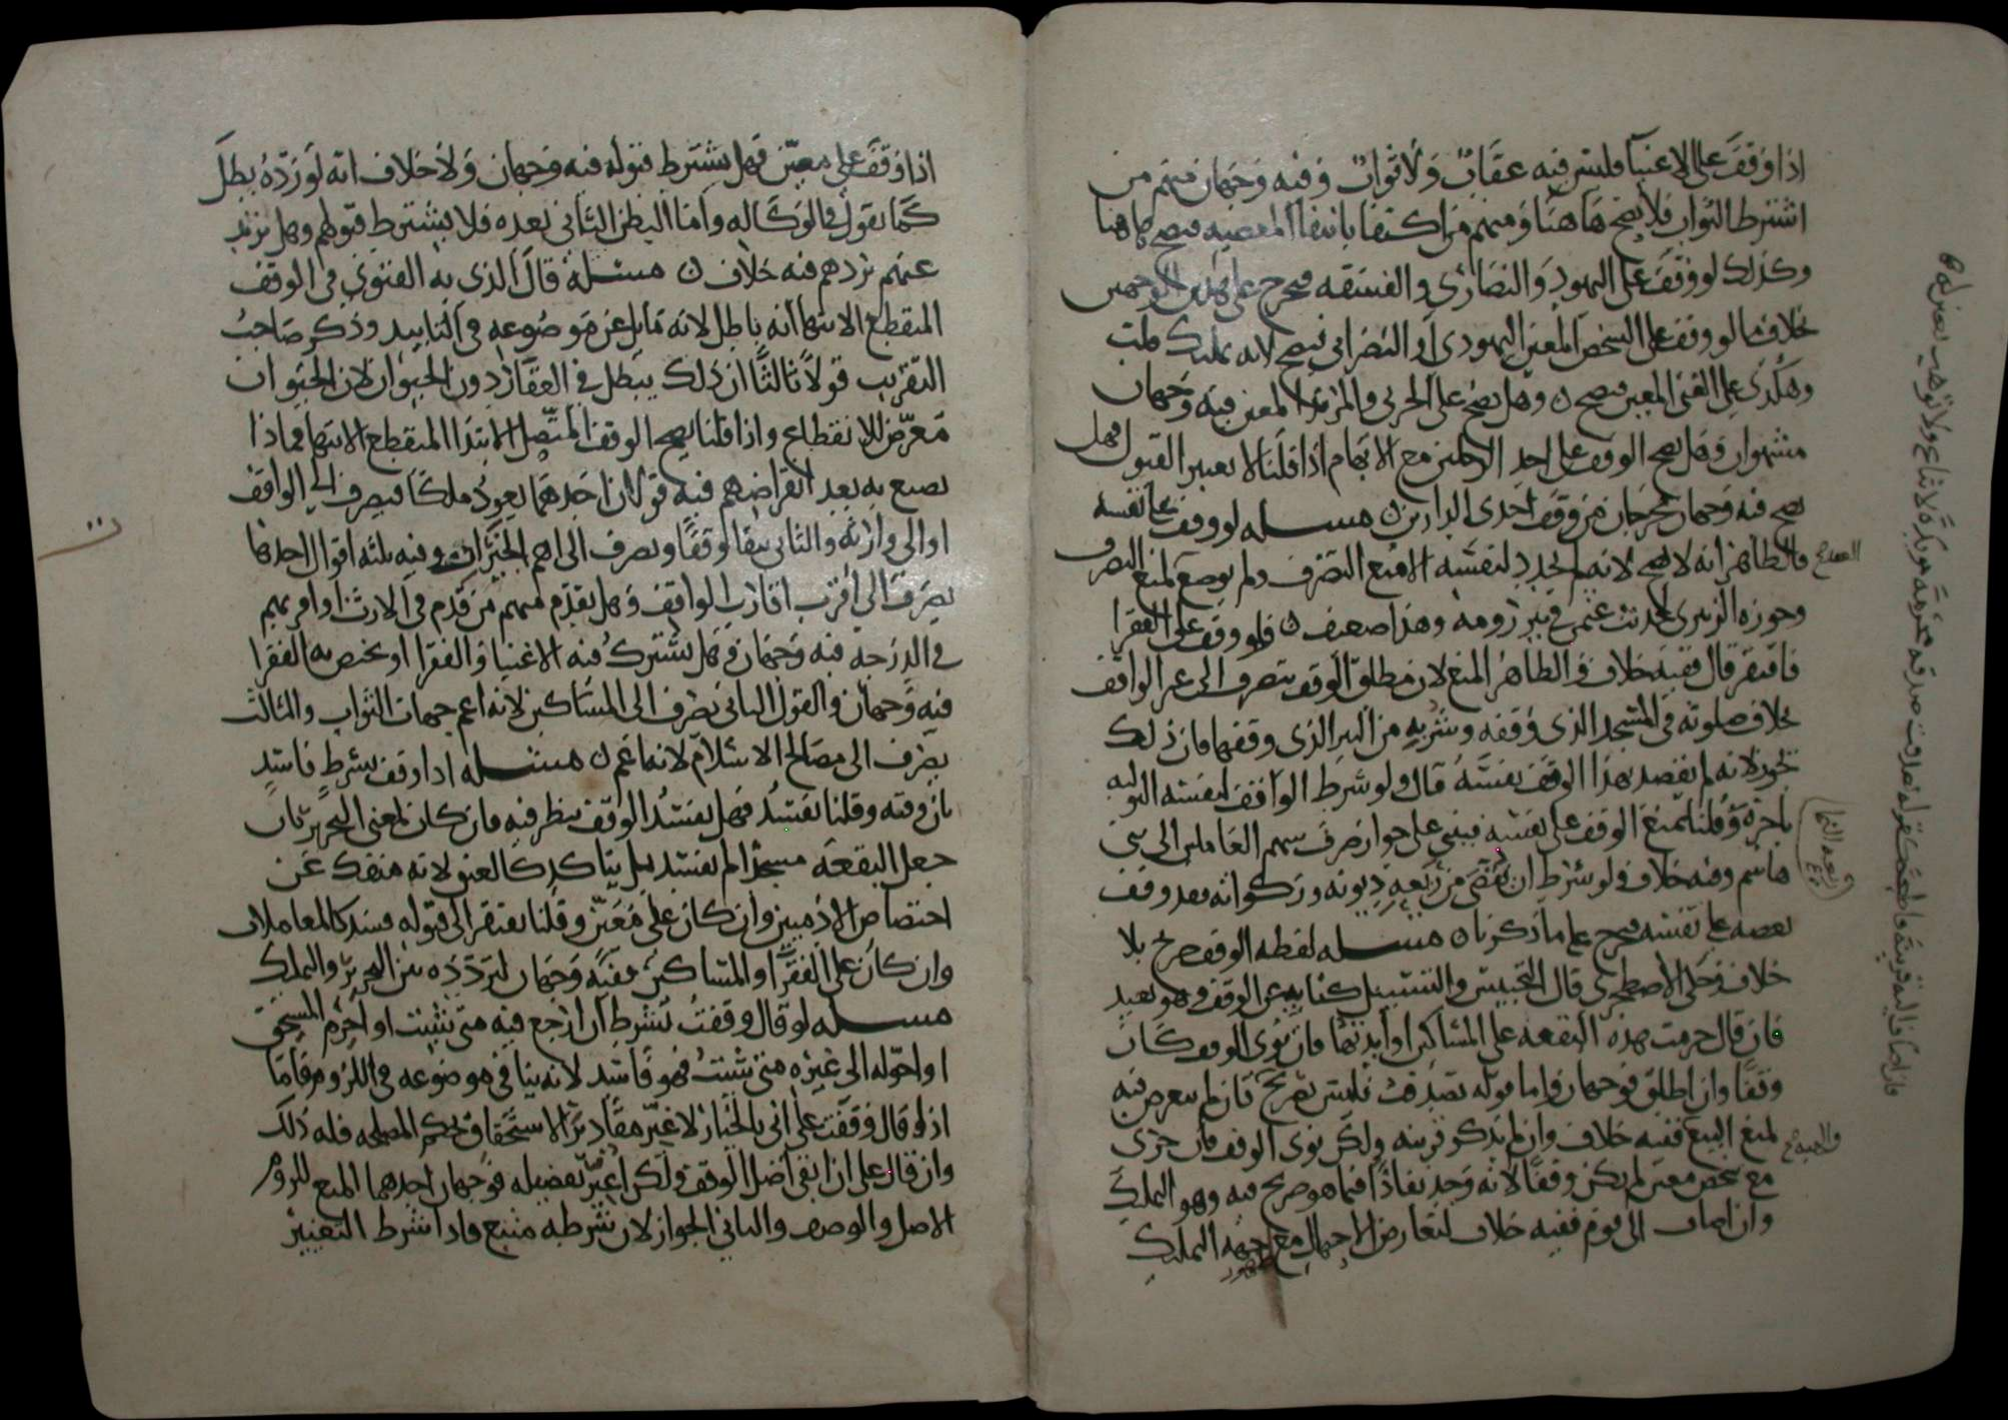 اذا وقف على الاغنيا فليس فيه عقاب ولا ثواب وفيه وجهان فمنهم من
اشترط الثواب فلا يصح هاهنا ومنهم من اكتفا بانتفا المعصيه فيصح هاهنا
وكذلك لو وقف على اليهود والنصارى والفسقه فيخرج على هذين الوجهين
بخلاف ما لو وقف على الشخص المعين اليهودي او النصراني فيصح لانه تمليك
وهكذى على الغنى المعين فيصح ٥ وهل يصح على الحربي والمرتد المعين فيه وجهان
مشهوران وهل يصح الوقف على احد الرجلين مع الابهام اذا قلنا لا يعتبر القبول فهل
يصح فيه وجهان يخرجان من وقف احدى الدارين ٥ مسله لو وقف على نفسه
فالظاهر انه لا يصح لانه لم يجدد لنفسه الا منع التصرف ولم يوضع لمنع التصرف
وجوزه الزبيرى لحديث عثمن في بير رومه وهذا ضعيف ٥ فلو وقف على الفقرا
فافتقر قال ففيه خلاف والظاهر المنع لان مطلق الوقف ينصرف الى غير الواقف
بخلاف صلوته في المسجد الذي وقفه وشربه من البير الذي وقفها فان ذلك
يجوز لانه لم يقصد بهذا الوقف نفسه قال ولو شرط الواقف لنفسه التوليه
باجرة وقلنا يمنع الوقف على نفسه فيبنى على جواز صرف سهم العاملين الى بني
هاشم وفيه خلاف ولو شرط ان يقضى من ريعه ديونه وزكواته فقد وقف
بعضه على نفسه فيخرج على ما ذكرناه مسله لفظه الوقف صريح بلا
خلاف وحكى الاصطخري قال التحبيس والتسبيل كنايه عن الوقف وهو بعيد
فان قال حرمت هذه البقعه على المساكين او ابدتها فان نوى الوقف كان
وقفا وان اطلق فوجهان واما قوله تصدقت فليس بصريح فان لم يتعرض فيه
لمنع البيع ففيه خلاف وان لم يذكر قرينه ولكن نوى الوقف فان جرى
مع شخص معين لم يكن وقفا لانه وجد نفاذا فيما هو صريح فيه وهو التمليك
وان اضاف الى قوم ففيه خلاف لتعارض الاحتمال مع جهه التمليك
ظهور
اذا وقف على معين فهل يشترط قبوله فيه وجهان ولا خلاف انه لو رده بطل
كما نقول في الوكاله واما البطن الثاني بعده فلا يشترط قبولهم وهل يرتد
عنهم بردهم فيه خلاف ٥ مسله قال الذى به الفتوى في الوقف
المنقطع الانتها انه باطل لانه مايل عن موضوعه في التابيد وذكر صاحب
التقريب قولا ثالثا ان ذلك يبطل في العقار دون الحيوان لان الحيوان
معرض للانقطاع واذا قلنا يصح الوقف المتصل الابتدا المنقطع الانتها فماذا
يصنع به بعد انقراضهم فيه قولان احدهما يعود ملكا فيصرف الى الواقف
او الى وارثه والثانى يبقا وقفا ويصرف الى اهم الخيرات وفيه ثلثه اقوال احدها
يصرف الى اقرب اقارب الواقف وهل يقدم منهم من قدم في الارث او اقربهم
في الدرجه فيه وجهان وهل يشترك فيه الاغنيا والفقرا او يختص به الفقرا
فيه وجهان والقول الثانى يصرف الى المساكين لانه اعم جهات الثواب والثالث
يصرف الى مصالح الاسلام لانها اعم ٥ مسله اذا وقف بشرط فاسد
بان وقته وقلنا يفسد فهل يفسد الوقف ينظر فيه فان كان لمعنى التحرير بان
جعل البقعه مسجدا لم يفسد بل يتاكد كالعتق لانه منفك عن
اختصاص الادميين وان كان على معين وقلنا يفتقر الى قبوله فسد كالمعاملات
وان كان على الفقرا او المساكين ففيه وجهان لتردده بين التحرير والتمليك
مسله لو قال وقفت بشرط ان ارجع فيه متى شيت او احرم المستحق
او احوله الى غيره متى شيت فهو فاسد لانه ينافي موضوعه في اللزوم فاما
اذا قال وقفت على انى بالخيار لاغير مقادير الاستحقاق بحكم المصلحه فله ذلك
وان قال على ان ابقى اصل الوقف ولكن اغير تفضيله فوجهان احدهما المنع للزوم
الاصل والوصف والثانى الجواز لان شرطه متبع واذا شرط التغيير